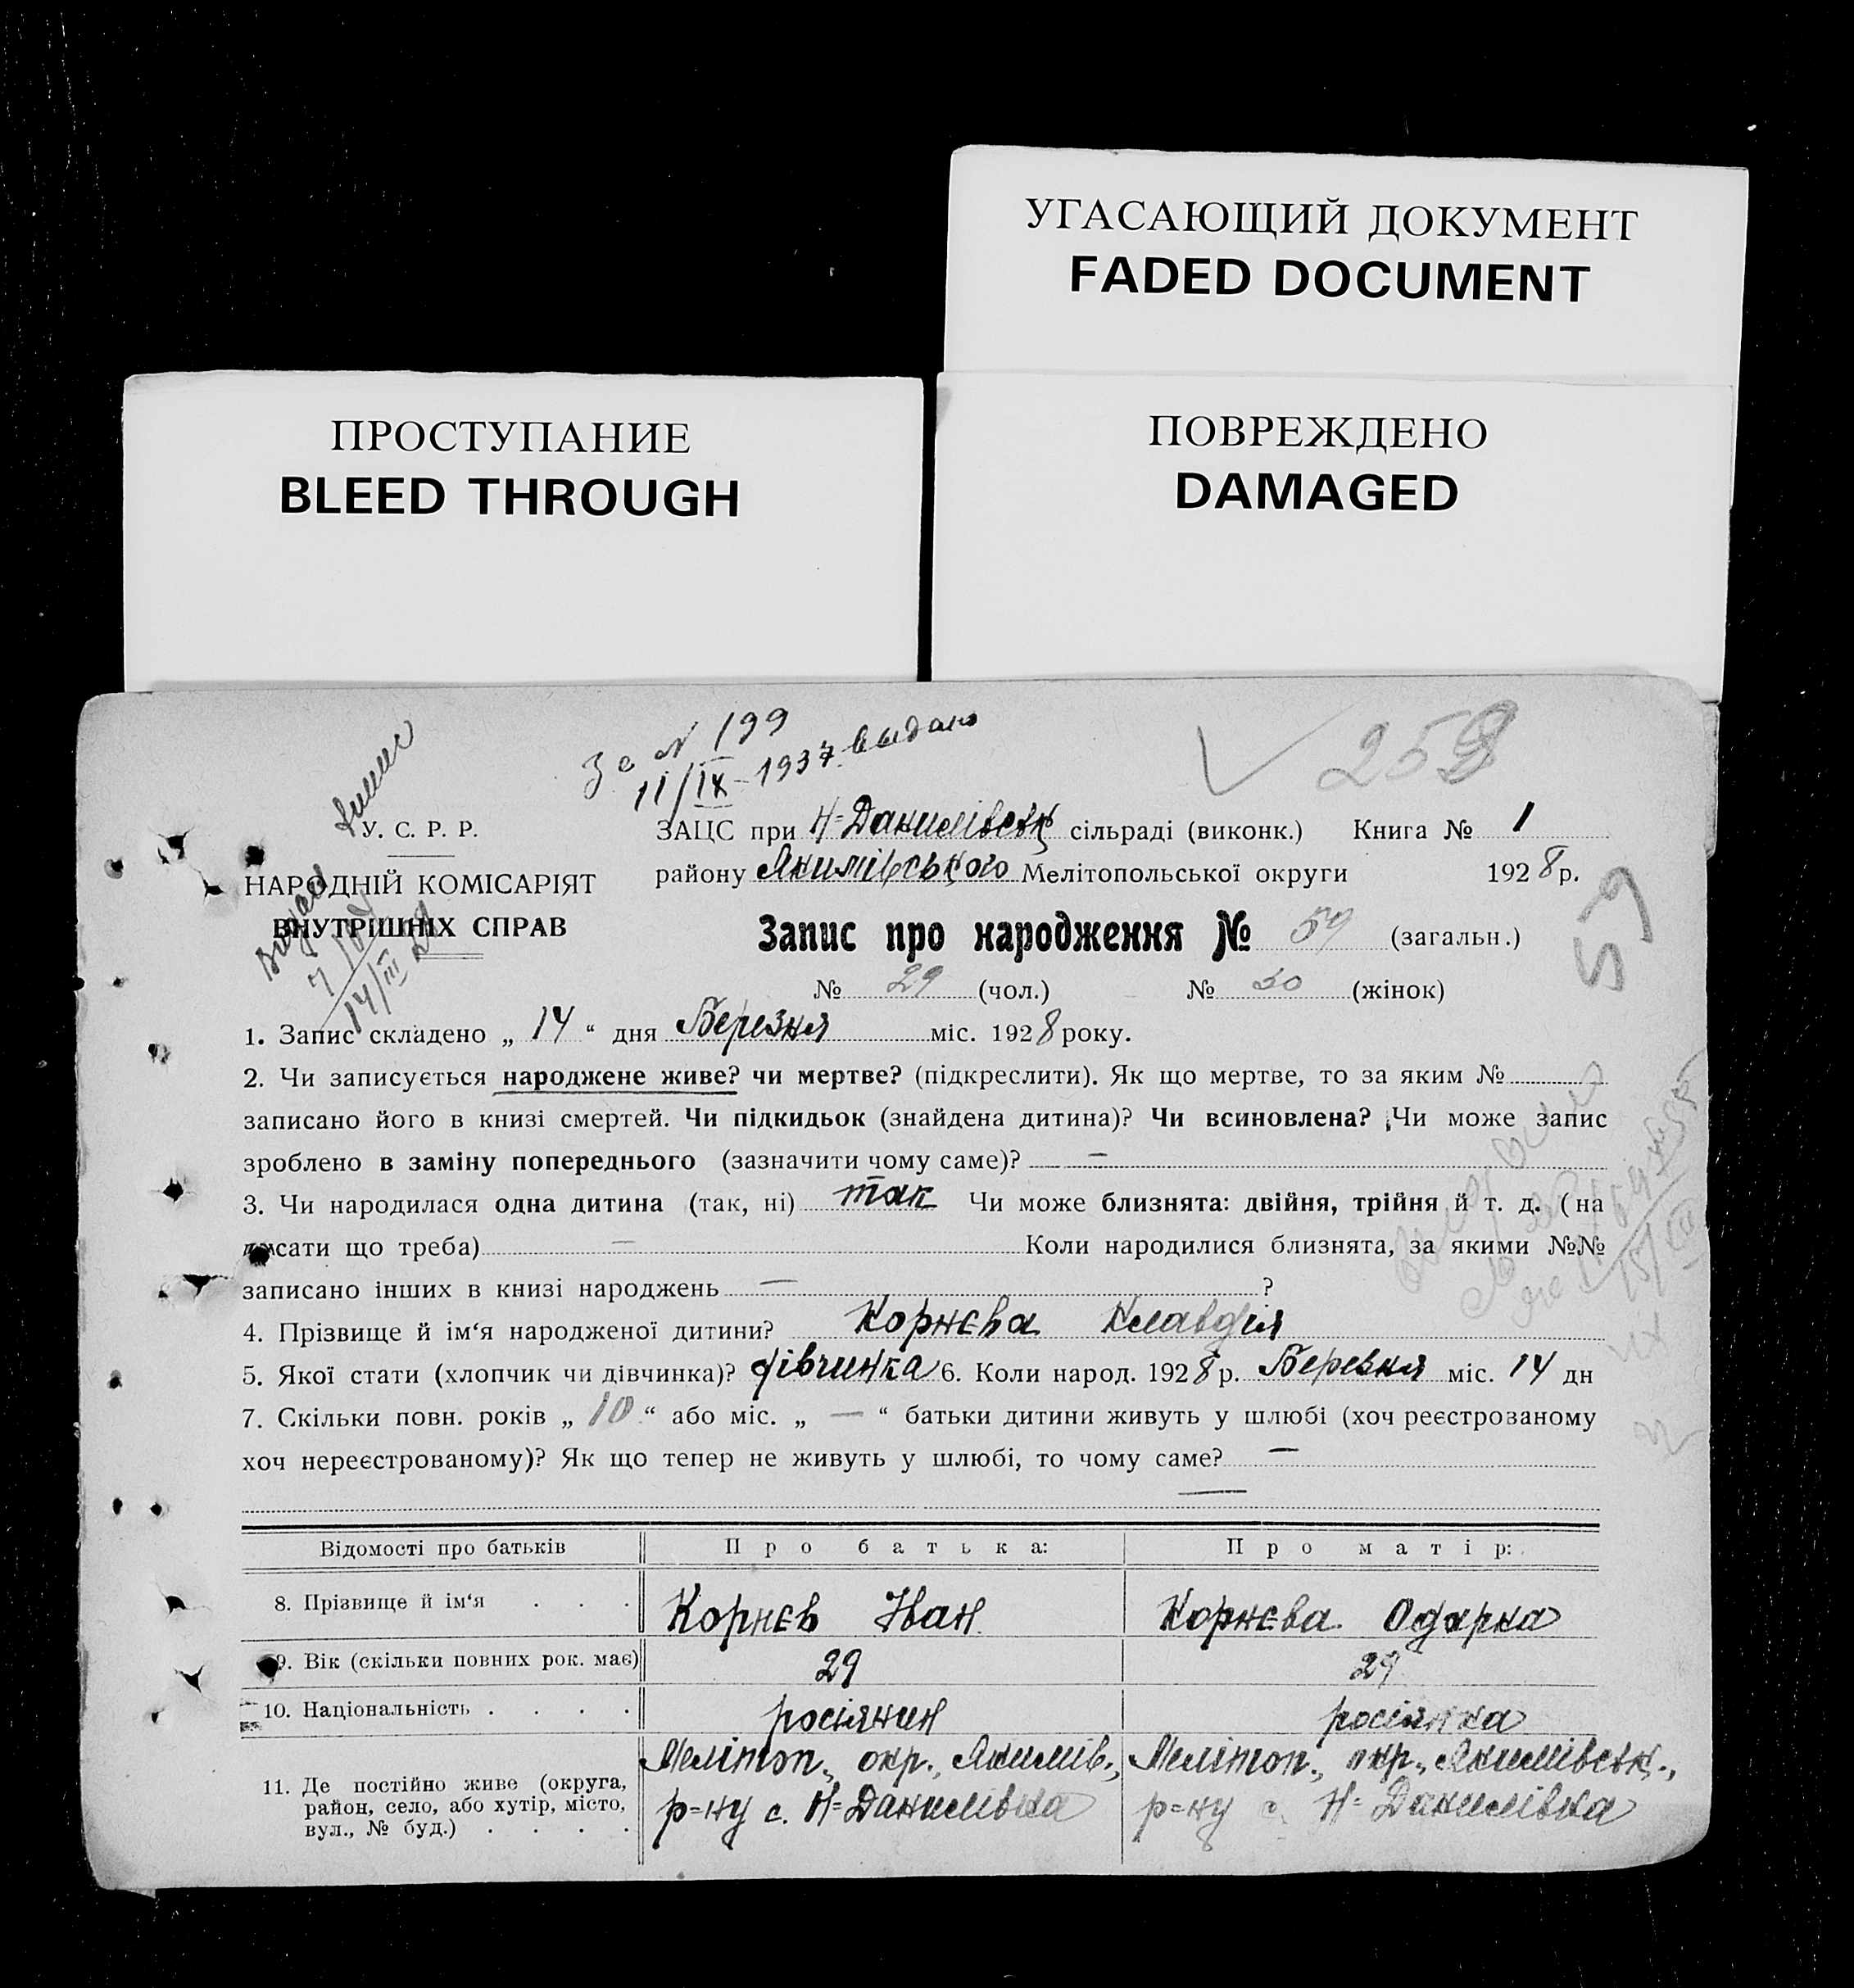 УГАСАЮЩИЙ ДОКУМЕНТ
FADED DOCUMENT
ПРОСТУПАНИЕ
BLEED THROUGH
ПОВРЕЖДЕНО
DAMAGED
За N 199
11/IX-1937 выдано
258
У. С. Р. Р.
НАРОДНІЙ КОМІСАРІЯТ
ВНУТРІШНІХ СПРАВ
14/III
ЗАЦС при Н-Данилівськ сільраді (виконк.) Книга № 1
району Якимівського Мелітопольської округи 1928 р.
Запис про народження № 59 (загальн.)
59
№ 29 (чол.) № 30 (жінок)
1. Запис складено „ 14 “ дня Березня міс. 1928 року.
2. Чи записується народжене живе? чи мертве? (підкреслити). Як що мертве, то за яким №
записано його в книзі смертей. Чи підкидьок (знайдена дитина)? Чи всиновлена? Чи може запис
зроблено в заміну попереднього (зазначити чому саме)? —
3. Чи народилася одна дитина (так, ні) так Чи може близнята: двійня, трійня й т. д. (на
писати що треба) — Коли народилися близнята, за якими №№
записано інших в книзі народжень — ?
4. Прізвище й ім‘я народженої дитини? Корнєва Клавдія
5. Якої стати (хлопчик чи дівчинка)? дівчинка 6. Коли народ. 1928 р. Березня міс. 14 дн
7. Скільки повн. років „ 10 “ або міс. „ — “ батьки дитини живуть у шлюбі (хоч реєстрованому
хоч нереєстрованому)? Як що тепер не живуть у шлюбі, то чому саме? —
Відомості про батьків Про батька: Про матір:
8. Прізвище й ім‘я . . . Корнєв Іван Корнєва Одарка
9. Вік (скільки повних рок. має) 29 29
10. Національність . . . . росіянин росіянка
11. Де постійно живе (округа, район, село, або хутір, місто, вул., № буд.) . . . .
Мелітоп., окр., Якимів., р=ну с. Н=Данилівка
Мелітоп., окр., Якимівськ., р=ну с. Н=Данилівка